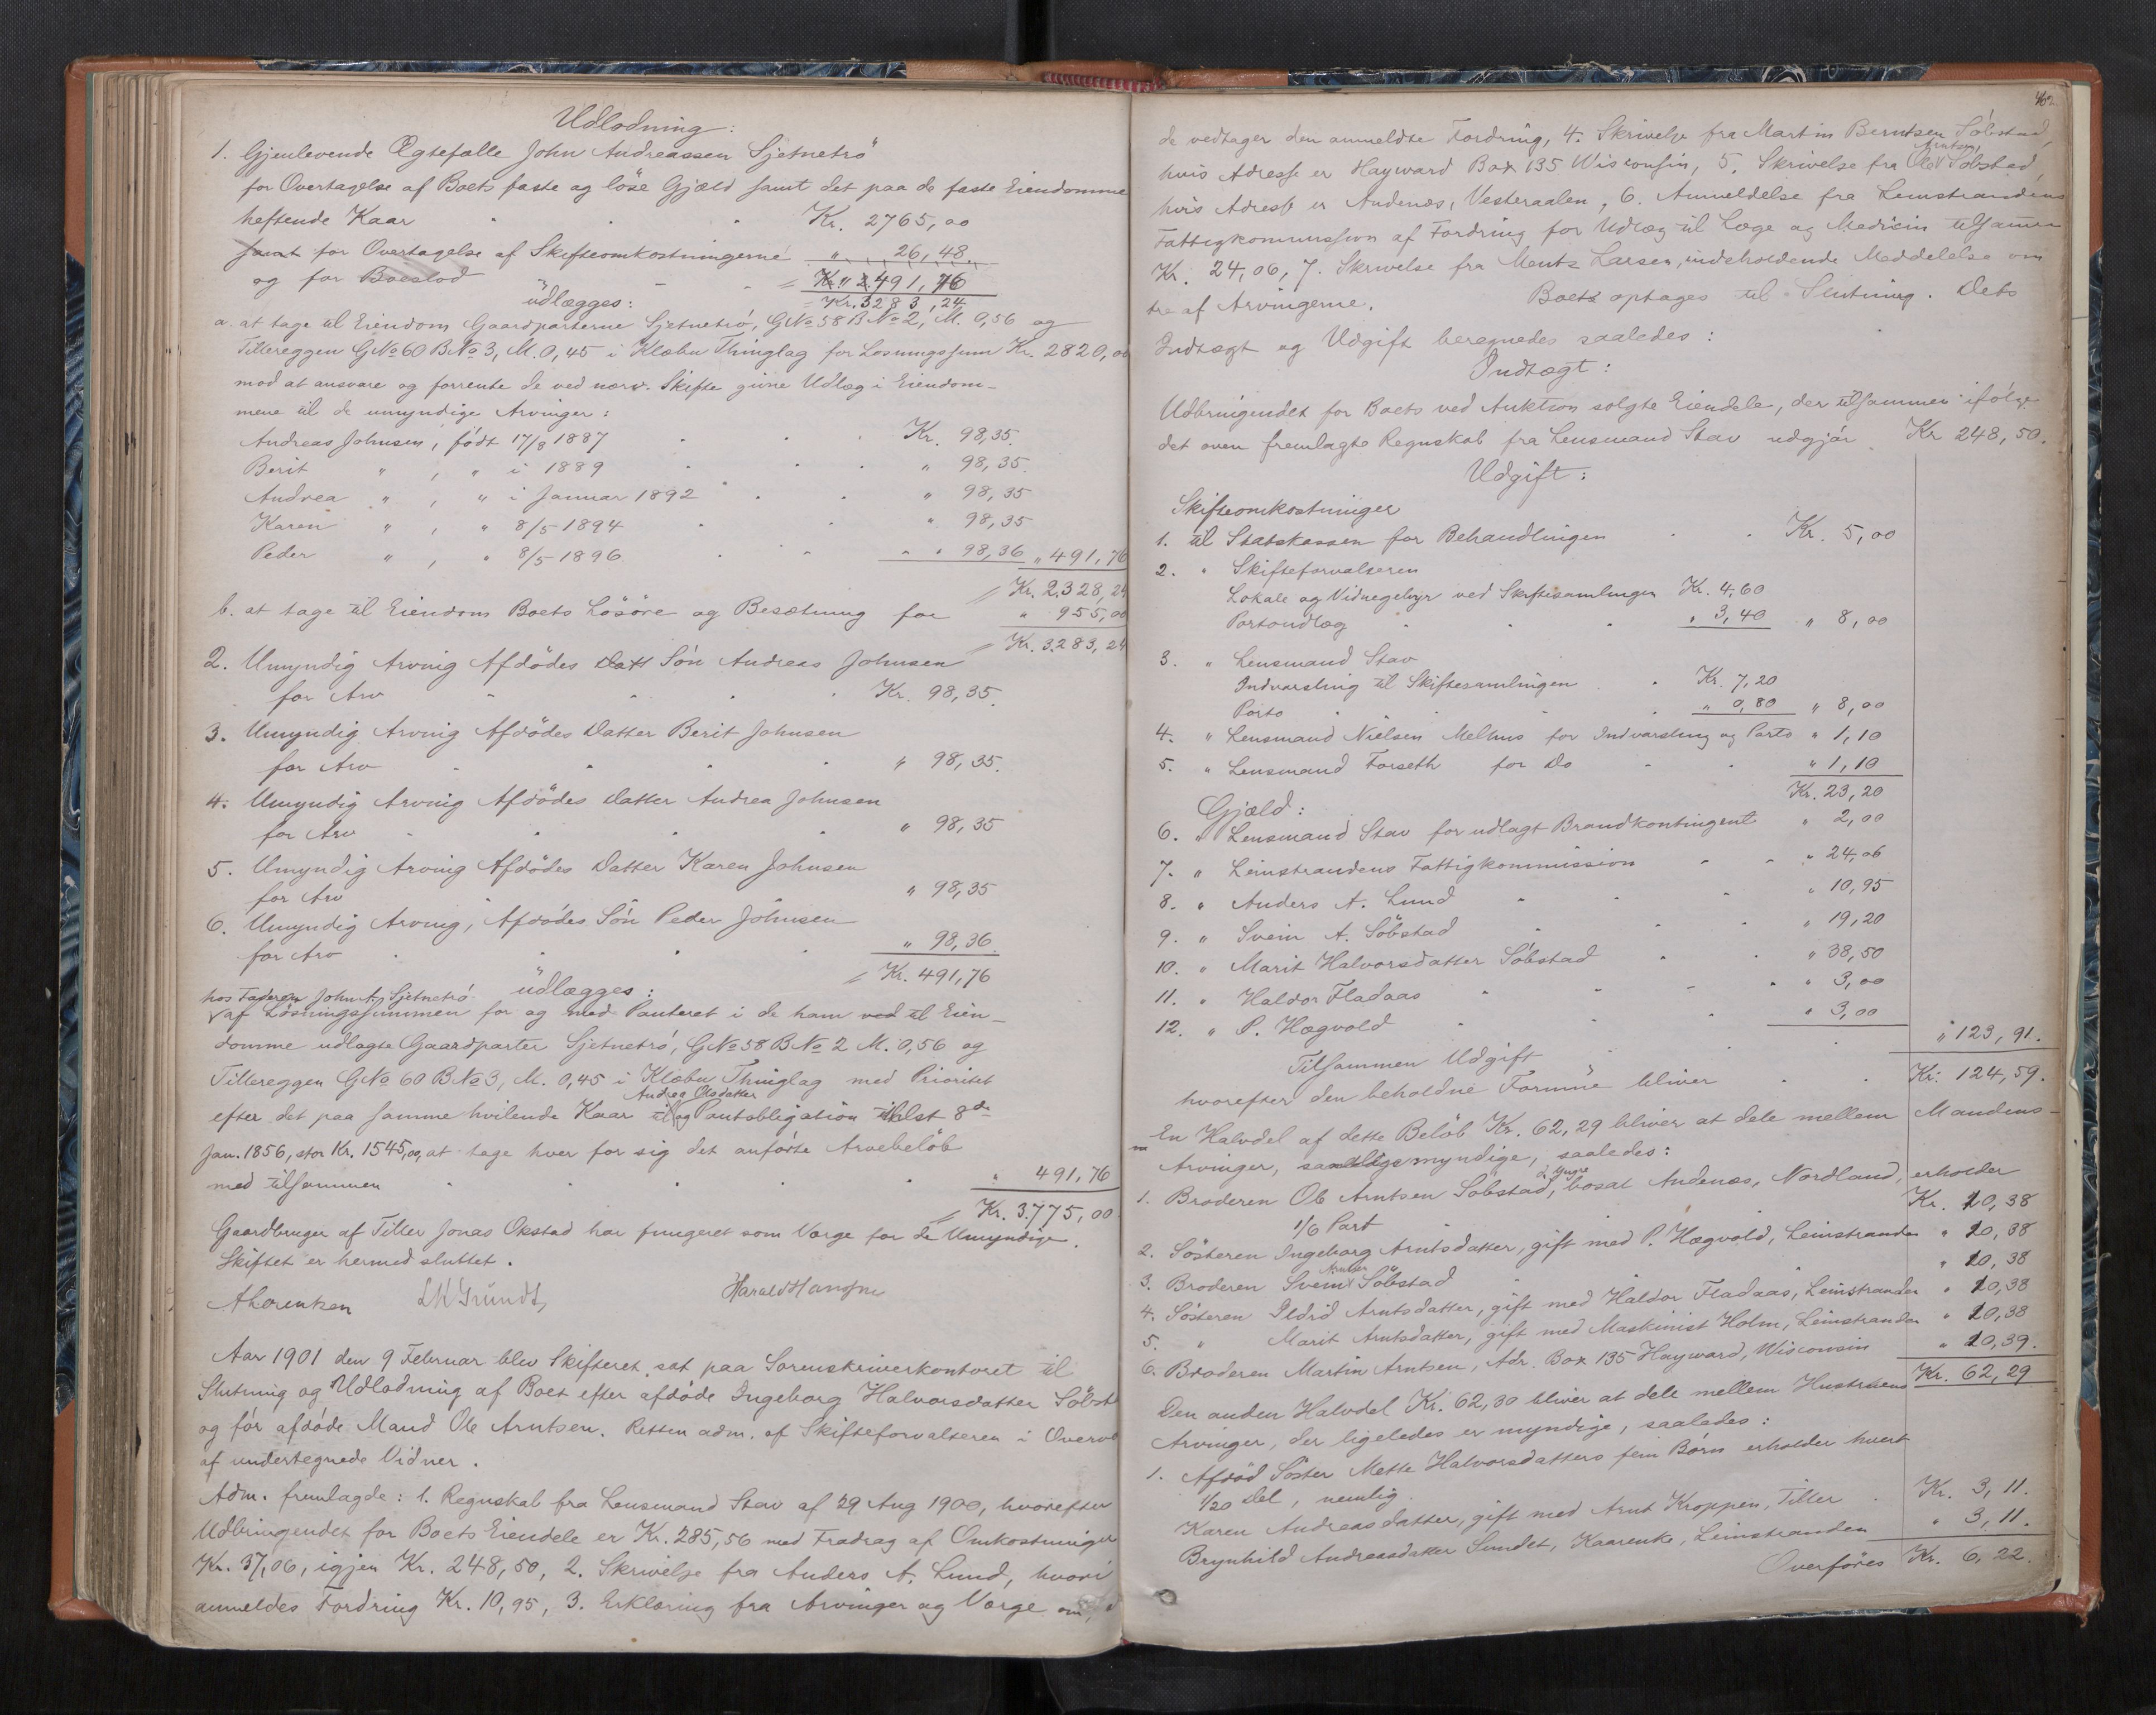 Udlodning:
1. Gjenlevende Ægtefælle John Andreassen Sjetnetrö
for Overtagelse af Boets faste og löse Gjæld samt det paa de faste Eiendomme
heftende Kaar " " Kr. 2765,00
samt for Overtagelse af Skifteomkostningerne " 26,48.
og for Boeslod " 491,76
Kr. 3283,24.
udlægges:
a. at tage til Eiendom Gaardparterne Sjetnetrö, GNo 58 BNo 2, M. 0,56 og
Tillereggen GNo 60 BNo 3, M. 0,45 i Klæbu Thinglag for Løsningssum Kr. 2820,00
mod at ansvare og forrente de ved nærv. Skifte givne Udlæg i Eiendom-
mene til de umyndige Arvinger:
Andreas Johnsen, født 17/8 1887 Kr. 98,35.
Berit " , " i 1889 " 98,35.
Andrea " , " i Januar 1892 " 98,35
Karen " , " 8/5 1894 " 98,35
Peder " , " 8/5 1896 " 98,36 " 491,76
Kr. 2328,24
b. at tage til Eiendom Boets Lösöre og Besætning for " 955,00
Kr. 3283,24
2. Umyndig Arving Afdödes Datt Sön Andreas Johnsen
for Arv Kr. 98,35.
3. Umyndig Arving Afdödes Datter Berit Johnsen
for Arv " 98,35.
4. Umyndig Arving Afdödes Datter Andrea Johnsen
for Arv " 98,35
5. Umyndig Arving Afdödes Datter Karen Johnsen
for Arv " 98,35
6. Umyndig Arving, Afdödes Sön Peder Johnsen
for Arv " 98,36.
Kr. 491,76
udlægges:
hos Faderen John A. Sjetnetrö
af Lösningssummen for og med Panteret i de ham ved til Eien-
domme udlagte Gaardparter Sjetnetrö, GNo 58 BNo 2 M. 0,56 og
Tillereggen GNo 60 BNo 3, M. 0,45 i Klæbu Thinglag med Prioritet
Andrea Olsdatter
efter det paa samme hvilende Kaar til og Pantobligation thlst 8de
Jan. 1856, stor Kr. 1545,00, at tage hver for sig det anförte Arvebelöb
med tilsammen " 491,76
Kr. 3775,00
Gaardbruger af Tiller Jonas Okstad har fungeret som Værge for de Umyndige.
Skiftet er hermed sluttet.
A Lorentzen Harald Hansen
Aar 1901 den 9 Februar blev Skifteret sat paa Sorenskriverkontoret til
Slutning og Udlodning af Boet efter afdöde Ingeborg Halvorsdatter Söbst
og för afdöde Mand Ole Arntsen. Retten adm. af Skifteforvalteren i Overv
af undertegnede Vidner.
Adm. fremlagde: 1. Regnskab fra Lensmand Stav af 29 Aug 1900, hvorefter
Udbringendet for Boets Eiendele er Kr. 285,56 med Fradrag af Omkostninger
Kr. 37,06, igjen Kr. 248,50, 2. Skrivelse fra Anders A. Lund, hvori
anmeldes Fordring Kr. 10,95, 3. Erklæring fra Arvinger og Værge om,
de vedtager den anmeldte Fordring, 4. Skrivelse fra Martin Berntsen Söbstad,
hvis Adresse er Hayward Box 135 Wisconsin, 5. Skrivelse fra Ole Arntsen Söbstad,
hvis Adresse er Andenæs, Vesteraalen, 6. Anmeldelse fra Leinstrandens
Fattigkommission af Fordring for Udlæg til Læge og Medicin tilsammen
Kr. 24,06, 7. Skrivelse fra Mentz Larsen, indeholdende Meddelelse om
tre af Arvingerne. Boets optages til Slutning. Dets
Indtægt og Udgift beregnedes saaledes:
Indtægt:
Udbringendet for Boets ved Auktion solgte Eiendele, der tilsammen ifölge
det oven fremlagte Regnskab fra Lensmand Stav udgjör Kr 248,50.
Udgift:
Skifteomkostninger
1. til Statskassen for Behandlingen Kr. 5,00
2. " Skifteforvalteren
Lokale og Vidnegebyr ved Skiftesamlingen Kr. 4,60
Portoudlæg " 3,40 " 8,00
3. " Lensmand Stav
Indvarsling til Skiftesamlingen Kr. 7,20
Porto " 0,80 " 8,00
4. " Lensmand Nielsen Melhus for Indvarsling og Porto " 1,10
5. " Lensmand Forseth for Do " 1,10
Kr. 23,20
Gjæld:
6. " Lensmand Stav for udlagt Brandkontingent " 2,00
7. " Leinstrandens Fattigkommission " 24,06
8. " Anders A. Lund " 10,95
9. " Svein A. Söbstad " 19,20
10. " Marit Halvorsdatter Söbstad " 38,50
11. " Haldor Fladaas " 3,00
12. " P. Hægvold " 3,00
Tilsammen Udgift " 123,91.
hvorefter den beholdne Formue bliver Kr. 124,59.
En Halvdel af dette Belöb Kr. 62,29 bliver at dele mellem Mandens
Arvinger, samtlige myndige, saaledes:
1. Broderen Ole Arntsen Söbstad d. yngre, bosat Andenæs, Nordland, erholder
1/6 Part Kr. 10,38
2. Sösteren Ingeborg Arntsdatter, gift med P. Hægvold, Leinstranden " 10,38
3. Broderen Svein Arntsen Söbstad " 10,38
4. Sösteren Ildrid Arntsdatter, gift med Haldor Fladaas, Leinstranden " 10,38
5. " Marit Arntsdatter, gift med Maskinist Holm, Leinstranden " 10,38
6. Broderen Martin Arntsen, Adr. Box 135 Hayward, Wisconsin " 10,39.
Kr. 62,29
Den anden Halvdel Kr. 62,30 bliver at dele mellem Hustruens
Arvinger, der ligeledes er myndige, saaledes:
1. Afdöd Söster Mette Halvorsdatters fem Börn erholder hvert
1/20 Del, nemlig
Karen Andreasdatter, gift med Arnt Kroppen, Tiller Kr. 3,11.
Brynhild Andreasdatter Sundet, Kaarenke, Leinstranden " 3,11.
Overföres Kr. 6,22.